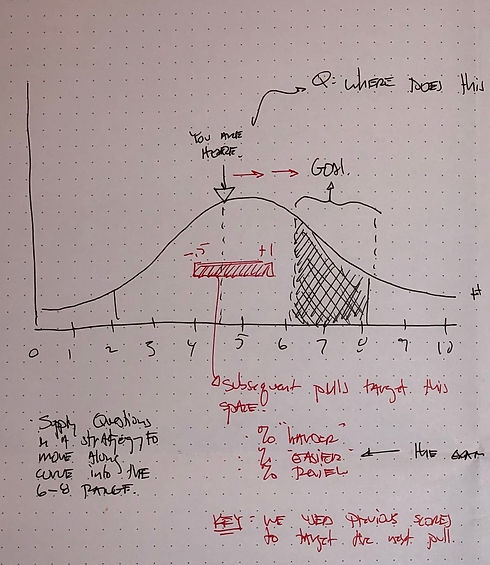 Q: WHERE DOES this
YOU ARE
HERE.
GOAL.
-.5 +1
#
0 1 2 3 4 5 6 7 8 9 10
Subsequent pulls target this
space.
% "HARDER"
% EASIER
% REVIEW
← the
Supply Questions
in a strategy to
move along
curve into the
6-8 RANGE.
KEY: WE USED previous scores
to target the next pull.